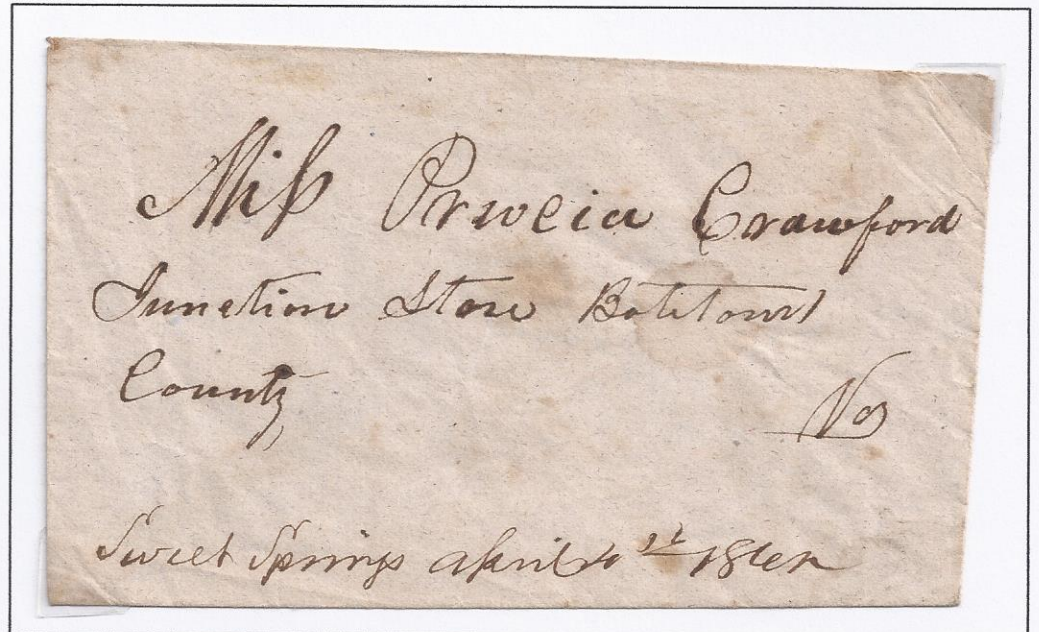 Miss Prucia Crawford
Junction Store Botetourt
County Va
Sweet Springs april 1862